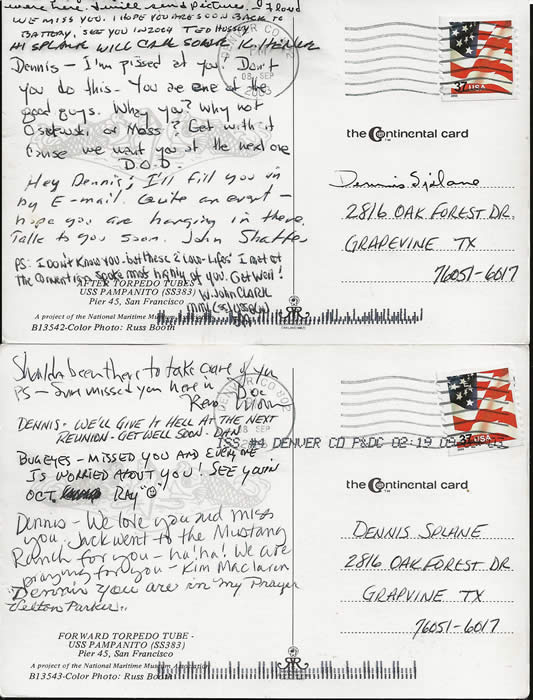 were here. I will send pictures. I
WE MISS YOU. I HOPE YOU ARE SOON BACK TO
BATTERY, SEE YOU IN 2004 TED HUSSEY
HI SPLANE WILL CALL SOONER K.
Dennis - I'm pissed at you! Don't
you do this - You are one of the
good guys. Why you? Why not
or Moss? Get with it
cause we want you at the next one
D.O.D.
Hey Dennis; I'll fill you in
by E-mail. Quite an event -
hope you are hanging in there.
Talk to you soon. John Shaffer
PS: I don't know you, but these 2 "Low-Lifes" I met at
the Convention spoke most highly of you. Get Well!
W. John Clark
AFTER TORPEDO TUBES
USS PAMPANITO (SS383)
Pier 45, San Francisco
A project of the National Maritime Museum
B13542-Color Photo: Russ Booth
DENVER CO
PM
08 SEP
2003
37 USA
the Continental card
TM
Dennis Splane
2816 OAK FOREST DR.
GRAPEVINE TX
76051-6017
Shoulda been there to take care of you
PS - Sure missed you here in Reno Doc
DENNIS - WE'LL GIVE IT HELL AT THE NEXT
REUNION - GET WELL SOON. DAN
BUGEYES - MISSED YOU AND EVERYONE
IS WORRIED ABOUT YOU! SEE YOU IN
OCT. RAY
Dennis - We love you and miss
you. Jack went to the Mustang
Ranch for you - ha!ha! We are
praying for you - Kim Maclaren
Dennis you are in my Prayer
Pelton Parker..
FORWARD TORPEDO TUBE -
USS PAMPANITO (SS383)
Pier 45, San Francisco
A project of the National Maritime Museum Association
B13543-Color Photo: Russ Booth
DENVER CO 802
SEP
ISS #4 DENVER CO P&DC 02:19
37 USA
the Continental card
DENNIS SPLANE
2816 OAK FOREST DR
GRAPVINE TX
76051-6017